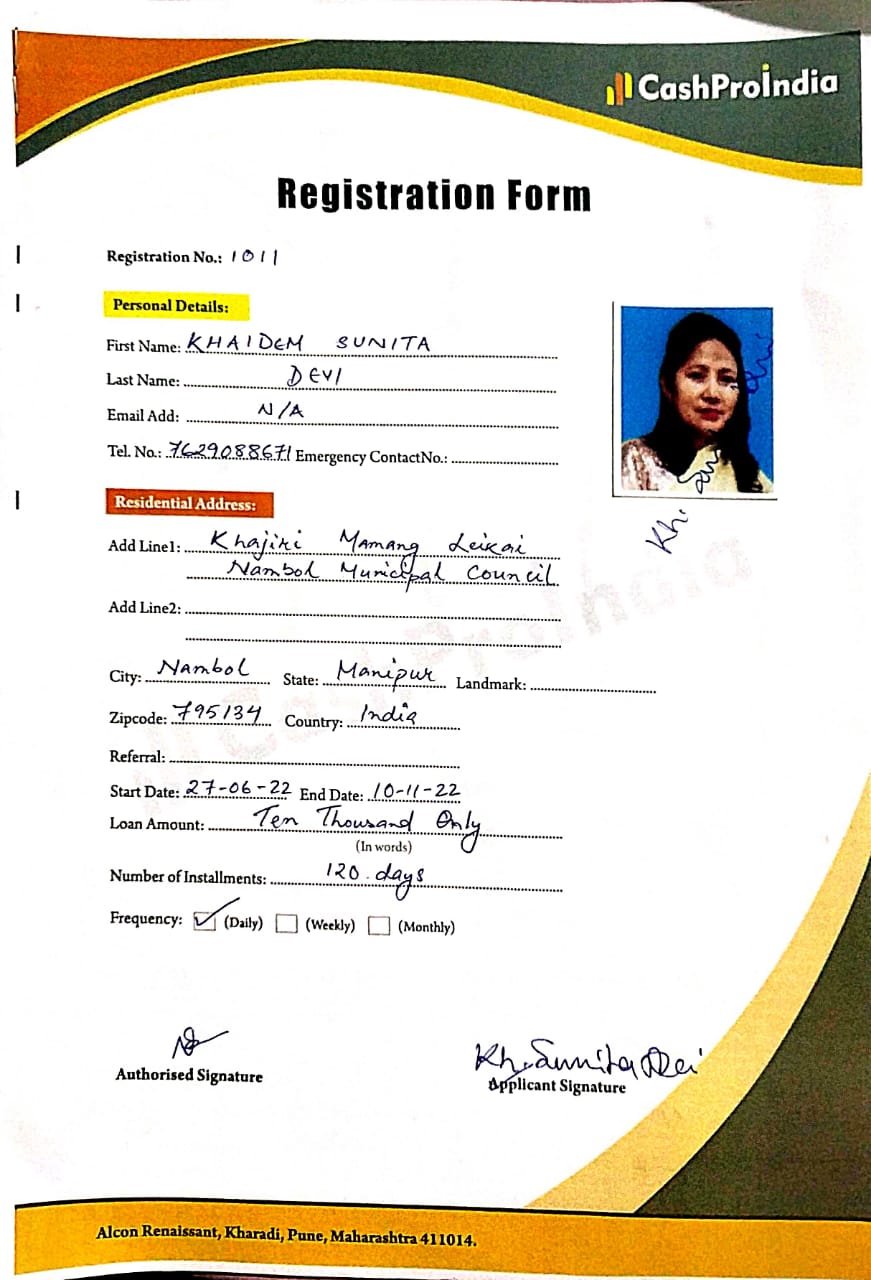 CashProIndia
Registration Form
Registration No.: 1011
Personal Details:
First Name: KHAIDEM SUNITA
Last Name: DEVI
Email Add: N/A
Tel. No.: 7629088671 Emergency ContactNo.:
Residential Address:
Add Line1: Khajiri Mamang Leikai
Nambol Municipal Council
Add Line2:
City: Nambol State: Manipur Landmark:
Zipcode: 795134 Country: India
Referral:
Start Date: 27-06-22 End Date: 10-11-22
Loan Amount: Ten Thousand Only
(In words)
Number of Installments: 120 days
Frequency: (Daily) (Weekly) (Monthly)
Kh. Sunita Devi
Authorised Signature
Applicant Signature
Alcon Renaissant, Kharadi, Pune, Maharashtra 411014.